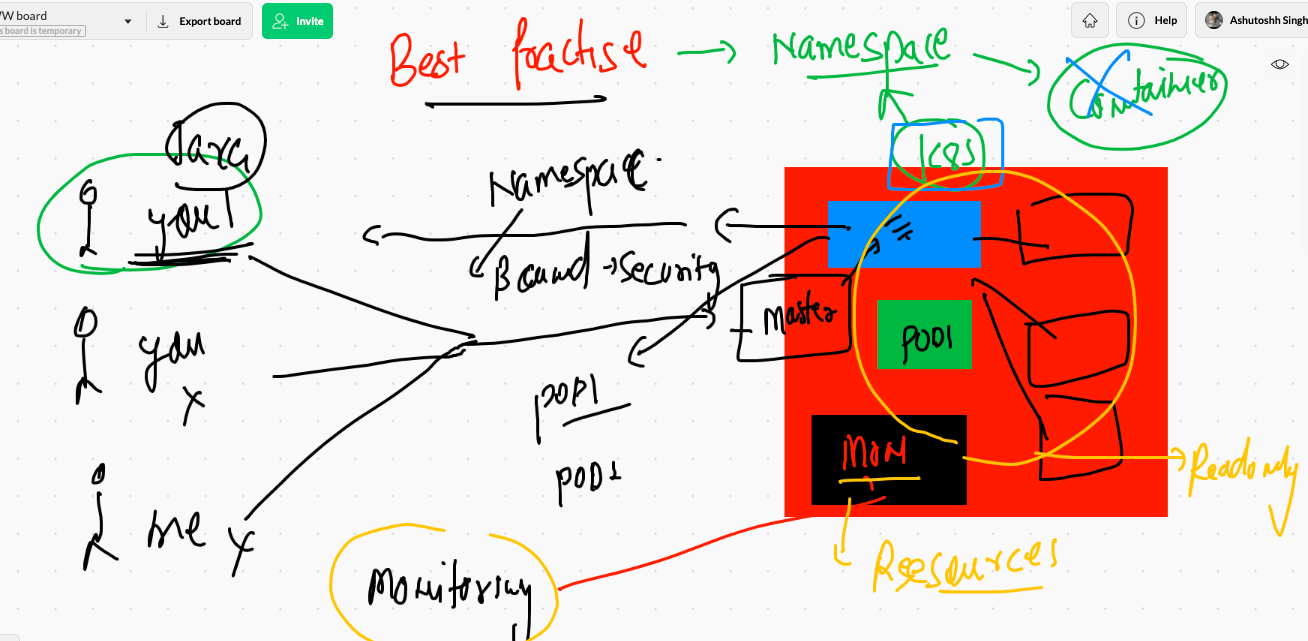 W board
s board is temporary
Export board
Invite
Help
Ashutoshh Singh
Best Practise → Namespace → Container
K8s
you
Namespace
Bound → Security
Master
you
x
POD1
POD1
POD1
Mon
Readonly
me x
Resources
Monitoring